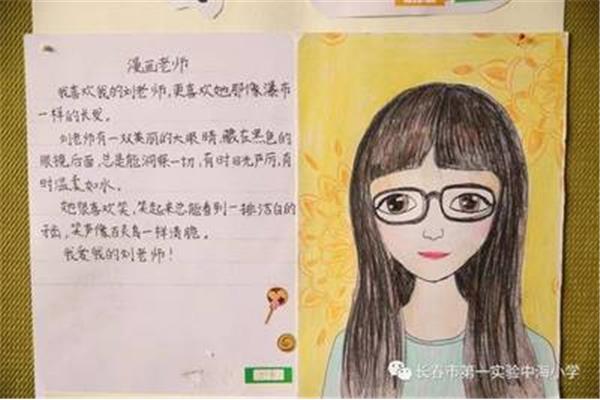 漫画老师
我喜欢我的刘老师,更喜欢她那像瀑布
一样的长发。
刘老师有一双美丽的大眼睛,藏在黑色的
眼镜后面,总是能洞察一切,有时目光严厉,有
时温柔如水。
她很喜欢笑,笑起来总能看到一排洁白的
牙齿,笑声像百灵鸟一样清脆。
我爱我的刘老师!
长春市第一实验中海小学